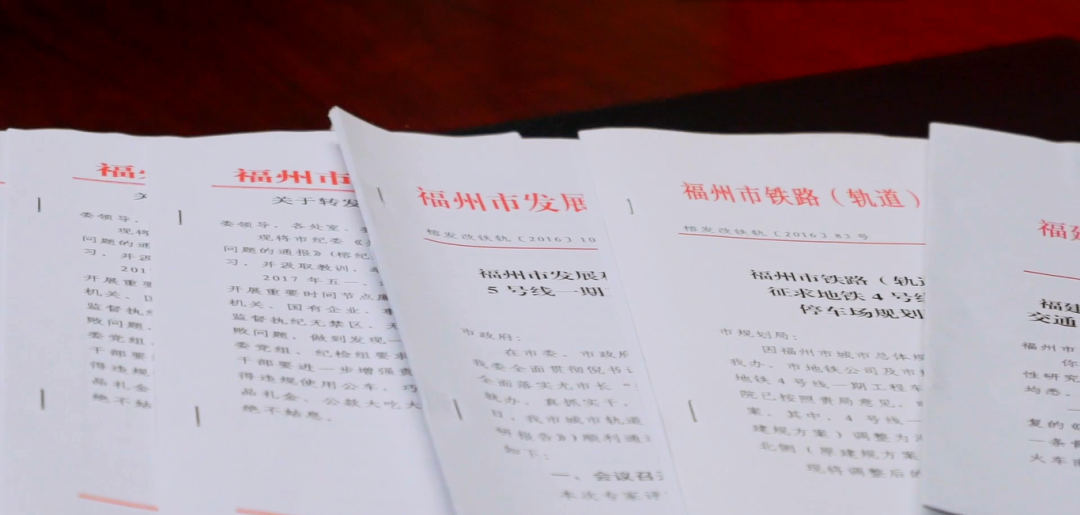 福
关
委领导、
现将
问题的通
习，并汲
201
开展重要
机关、
监督执纪
败问题，
委党组、
干部要
得违规
品礼金
绝不姑
福州市
关于转发
委领导、各处室、
现将市纪委《
问题的通报》（榕纪
习，并汲取教训，
2017年五一、
开展重要时间节点
机关、国有企业、
监督执纪无禁区，
败问题，做到发现一
委党组、纪检组要求
干部要进一步增强责
得违规使用公车，巧
品礼金、公款大吃大
绝不姑息。
福州市发展
榕发改铁轨〔2016〕10
福州市发展
5号线一期
市政府：
在市委、市政府
我委全面贯彻倪书记
全面落实尤市长“
就办、真抓实干，
日，我市城市轨道
研报告》）顺利通过
如下：
一、会议召开
本次专家评
福州市铁路（轨道）
榕发改铁轨〔2016〕83号
福州市铁路（轨道
征求地铁4号线
停车场规划
市规划局：
因福州市城市总体规
我办、市地铁公司及市规
地铁4号线一期工程车
院已按照贵局意见，
案。其中，4号线一
建规方案）调整为
北侧（原建规方案
现将调整后的
福建
福建
交通
福州市
你
性研究
均悉。
复的《
一条
火车南